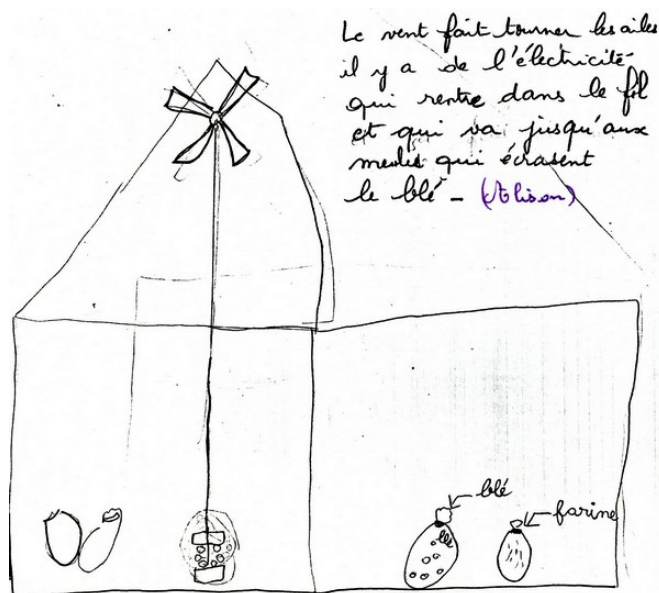 Le vent fait tourner les ailes
il y a de l'électricité
qui rentre dans le fil
et qui va jusqu'aux
meules qui écrasent
le blé - (Alison)
blé
blé
farine